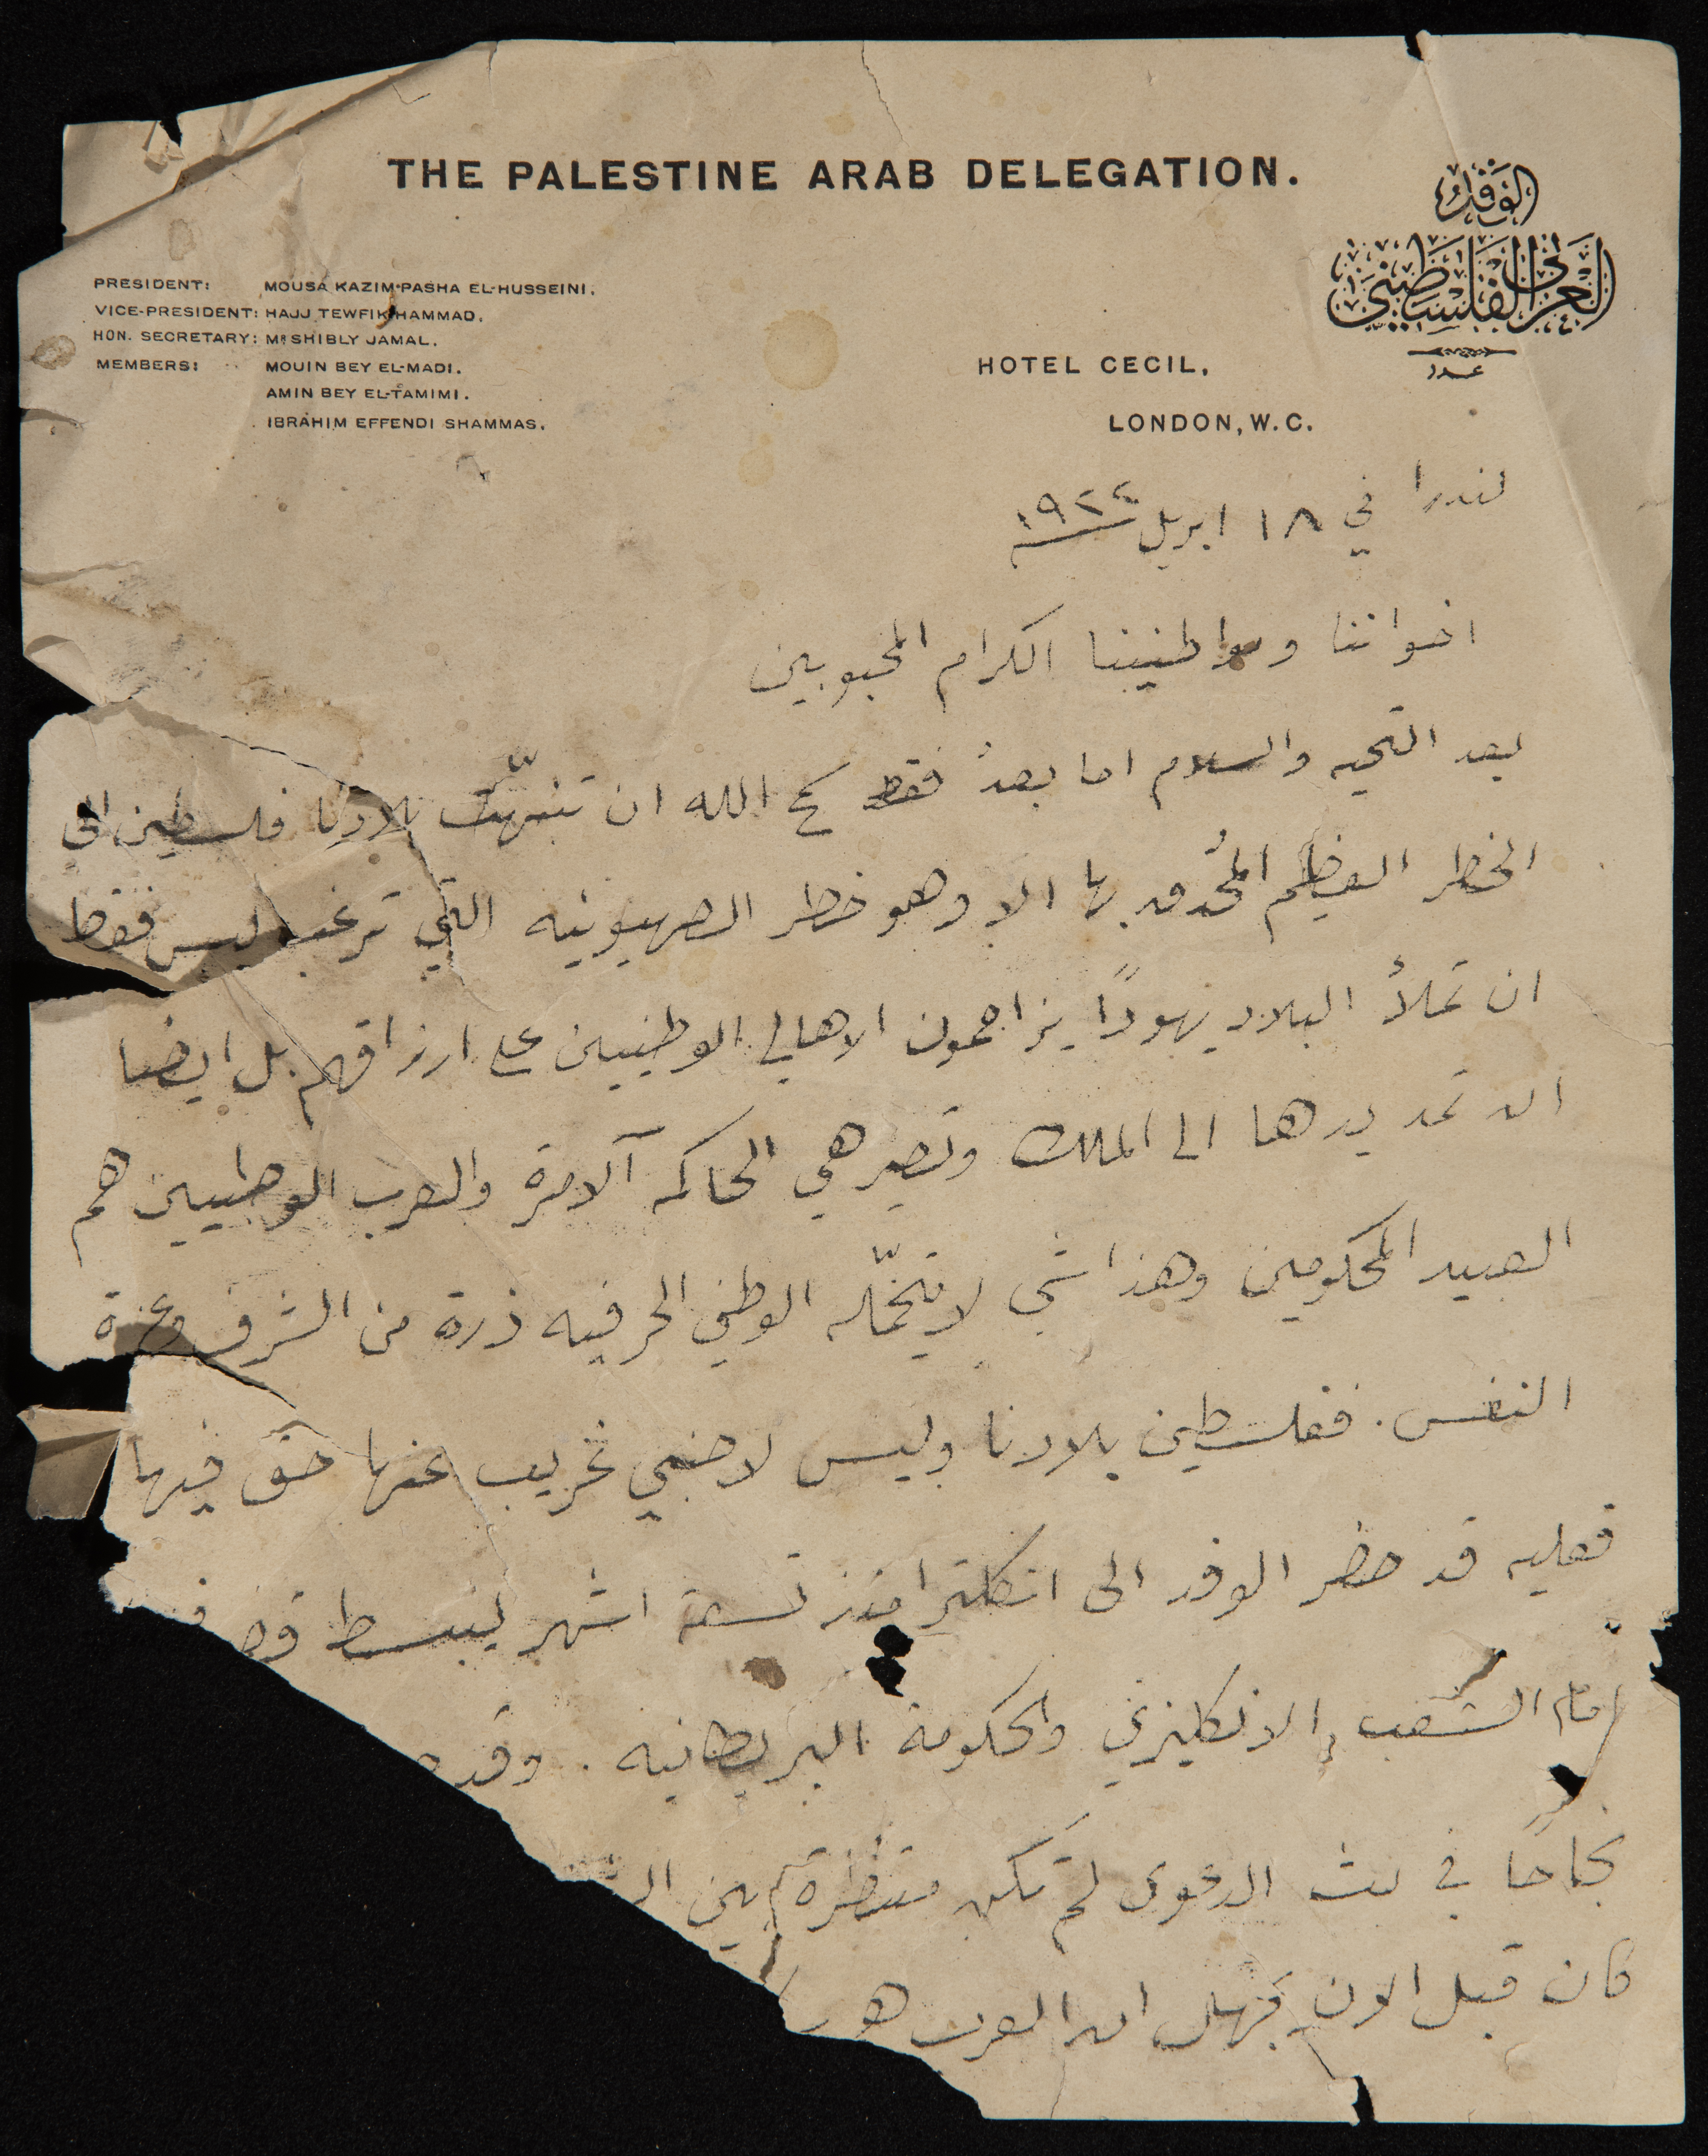 THE PALESTINE ARAB DELEGATION.
الوفد
العربي الفلسطيني
عدد
PRESIDENT: MOUSA KAZIM PASHA EL-HUSSEINI.
VICE-PRESIDENT: HAJJ TEWFIK HAMMAD.
HON. SECRETARY: Mr SHIBLY JAMAL.
MEMBERS: MOUIN BEY EL-MADI.
AMIN BEY EL-TAMIMI.
IBRAHIM EFFENDI SHAMMAS.
HOTEL CECIL,
LONDON, W.C.
لندرا في ١٨ ابريل ١٩٢٢
اخواننا ومواطنيننا الكرام المحبوبين
بعد التحيه والسلام اما بعدُ فقد الله ان تنبهّت بلادنا فلسطين الى
الخطر العظيم المُحدق بها الا وهو خطر الصهيونيه التي ترغب ليس فقط
ان تملأ البلاد يهودًا يزاحمون الاهالي الوطنيين على ارزاقهم بل ايضا
ان تمد يدها الى الملك وتصير هي الحاكمه الآمرة والعرب الوطنيين هم
العبيد المحكومين وهذا شي لا يتحمّله الوطني الحر فيه ذرة من الشرف وعزة
النفس. ففلسطين بلادنا وليس لاجنبي غريب عنها حق فيها
فعليه قد حضر الوفد الى انكلترا منذ تسعة اشهر ليبسط قض
امام الشعب الانكليزي والحكومة البريطانيه. وقد
نجاحًا في بث الدعوى لم تكن منتظرة من ال
كان قبل الان يجهل ان العرب هم